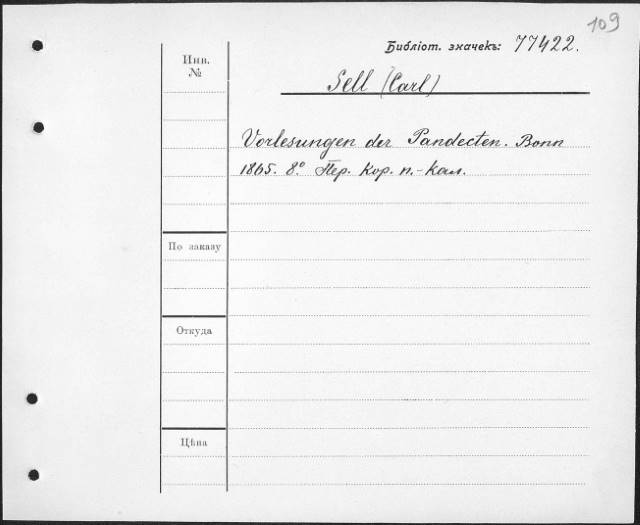 109
Библіот. значекъ: 77422.
Инв.
№
Sell (Carl)
Vorlesungen der Pandecten. Bonn
1865. 8° Пер. кор. п.-кал.
По заказу
Откуда
Цѣна